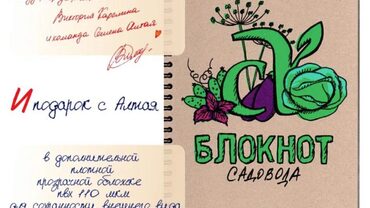 Виктория Карелина
и команда Семена Алтая
И подарок с Алтая
в дополнительной
плотной
прозрачной обложке
пвх 110 мкм
для сохранности внешнего вида
БЛОКНОТ
САДОВОДА